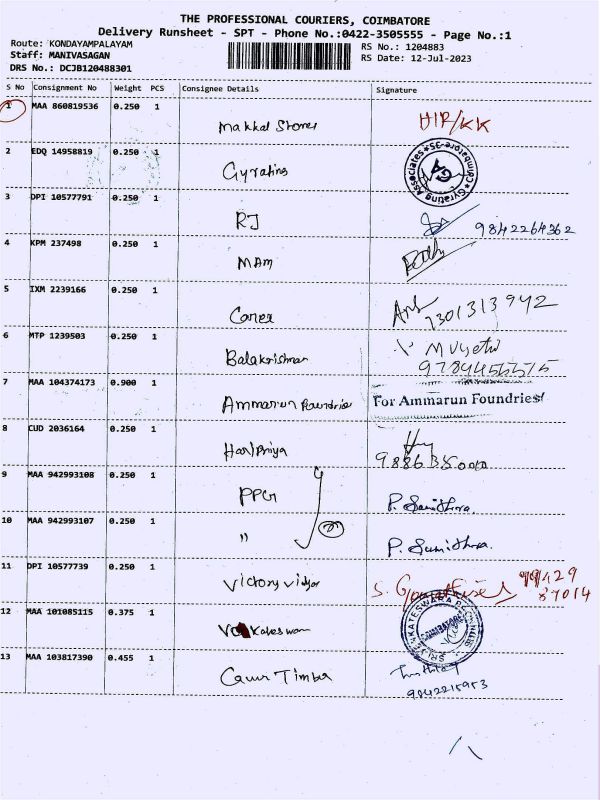 THE PROFESSIONAL COURIERS, COIMBATORE
Delivery Runsheet - SPT - Phone No.:0422-3505555 - Page No.:1
Route: KONDAYAMPALAYAM
Staff: MANIVASAGAN
DRS No.: DCJB120488301
RS No.: 1204883
RS Date: 12-Jul-2023
S No Consignment No Weight PCS Consignee Details Signature
1 MAA 860819536 0.250 1 Makkal Stores HIP/KK
2 EDQ 14958819 0.250 1 Gyrating
Gyrating Associates Coimbatore-35
GA
3 DPI 10577791 0.250 1 RJ 9842264362
4 KPM 237498 0.250 1 MAM
5 IXM 2239166 0.250 1 7301313942
6 MTP 1239503 0.250 1 Balakrishnan
7 MAA 104374173 0.900 1 Ammarun Foundries For Ammarun Foundries
8 CUD 2036164 0.250 1 Haripriya
9 MAA 942993108 0.250 1 PPG P. Sumithra.
10 MAA 942993107 0.250 1 " P. Sumithra.
11 DPI 10577739 0.250 1 Victory vidyar
12 MAA 101085115 0.375 1
COIMBATORE
13 MAA 103817390 0.455 1 Timber
9842215953